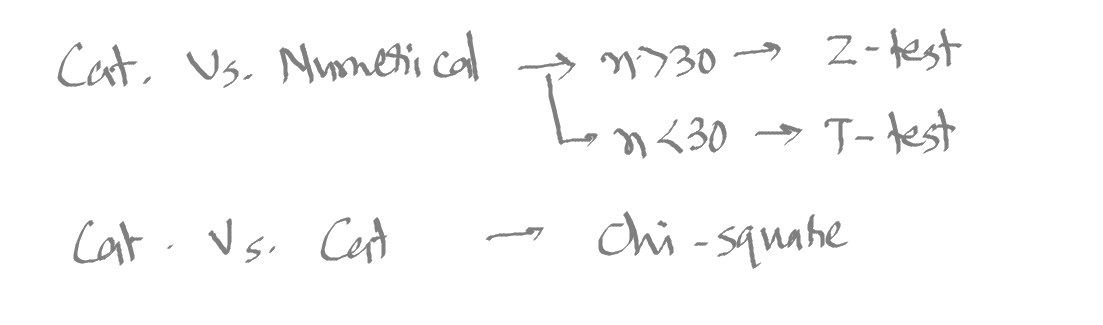 Cat. Vs. Numerical → n>30 → Z-test
↳ n<30 → T-test
Cat. Vs. Cat → Chi-square